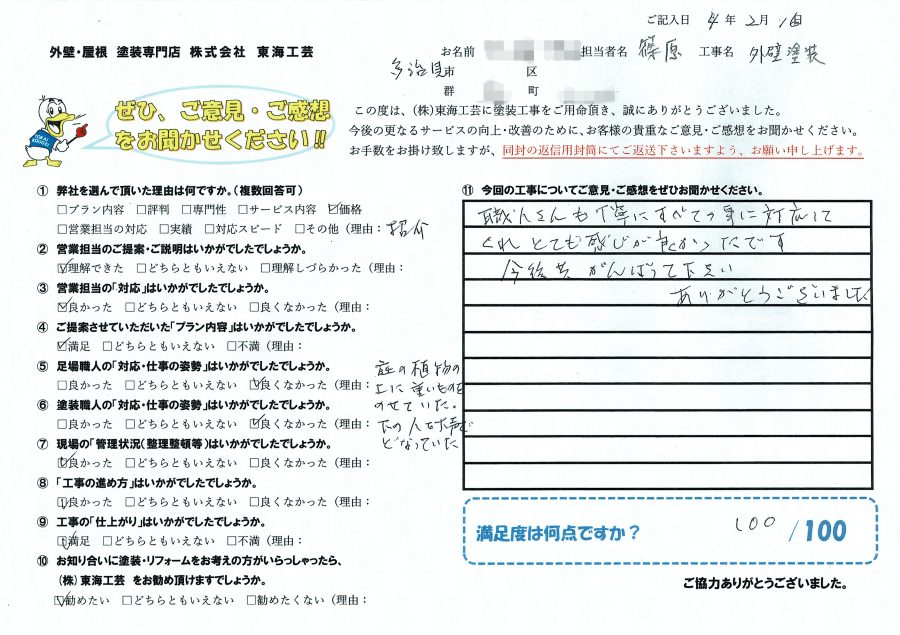 ご記入日 4 年 2 月 1 日
外壁・屋根 塗装専門店 株式会社 東海工芸
お名前 担当者名 篠原 工事名 外壁塗装
多治見市 区
群 町
ぜひ、ご意見・ご感想
をお聞かせください!!
この度は、(株)東海工芸に塗装工事をご用命頂き、誠にありがとうございました。
今後の更なるサービスの向上・改善のために、お客様の貴重なご意見・ご感想をお聞かせください。
お手数をお掛け致しますが、同封の返信用封筒にてご返送下さいますよう、お願い申し上げます。
① 弊社を選んで頂いた理由は何ですか。(複数回答可)
□プラン内容 □評判 □専門性 □サービス内容 ☑価格
□営業担当の対応 □実績 □対応スピード □その他(理由: 紹介
② 営業担当のご提案・ご説明はいかがでしたでしょうか。
☑理解できた □どちらともいえない □理解しづらかった(理由:
③ 営業担当の「対応」はいかがでしたでしょうか。
☑良かった □どちらともいえない □良くなかった(理由:
④ ご提案させていただいた「プラン内容」はいかがでしたでしょうか。
☑満足 □どちらともいえない □不満(理由:
⑤ 足場職人の「対応・仕事の姿勢」はいかがでしたでしょうか。
□良かった □どちらともいえない ☑良くなかった(理由:
庭の植物の
上に重いものを
のせていた。
⑥ 塗装職人の「対応・仕事の姿勢」はいかがでしたでしょうか。
□良かった □どちらともいえない ☑良くなかった(理由:
下の人を大声で
どなっていた
⑦ 現場の「管理状況(整理整頓等)」はいかがでしたでしょうか。
☑良かった □どちらともいえない □良くなかった(理由:
⑧ 「工事の進め方」はいかがでしたでしょうか。
☑良かった □どちらともいえない □良くなかった(理由:
⑨ 工事の「仕上がり」はいかがでしたでしょうか。
☑満足 □どちらともいえない □不満(理由:
⑩ お知り合いに塗装・リフォームをお考えの方がいらっしゃったら、
(株)東海工芸 をお勧め頂けますでしょうか。
☑勧めたい □どちらともいえない □勧めたくない(理由:
⑪ 今回の工事についてご意見・ご感想をぜひお聞かせください。
職人さんも丁寧にすべての事に対応して
くれ とても感じが良かったです
今後共 がんばって下さい
ありがとうございました
満足度は何点ですか? 100 /100
ご協力ありがとうございました。